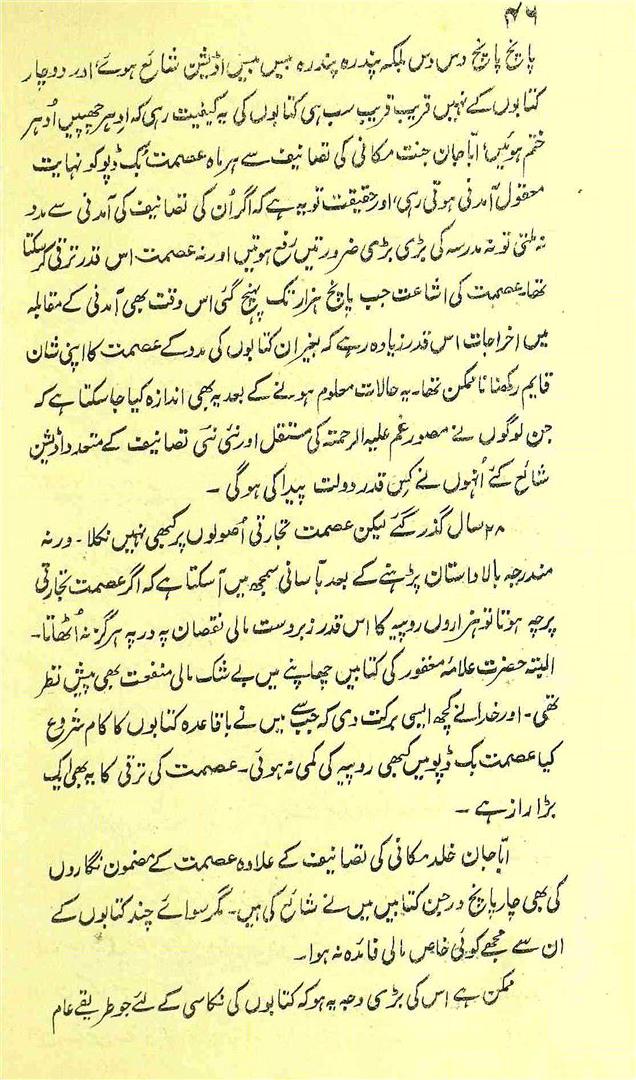 ۴۶
پانچ پانچ دس دس بلکہ پندرہ پندرہ بیس بیس اڈیشن شائع ہوئے، اور دو چار
کتابوں کے نہیں قریب قریب سب ہی کتابوں کی یہ کیفیت رہی کہ اِدہر چھپیں اُدہر
ختم ہوئیں، ابّا جان جنت مکانی کی تصانیف سے ہر ماہ عصمت بُک ڈپو کو نہایت
معقول آمدنی ہوتی رہی، اور حقیقت تو یہ ہے کہ اگر اُن کی تصانیف کی آمدنی سے مدد
نہ ملتی تو نہ مدرسہ کی بڑی بڑی ضرورتیں رفع ہوتیں اور نہ عصمت اس قدر ترقی کر سکتا
تھا۔ عصمت کی اشاعت جب پانچ ہزار تک پہنچ گئی اس وقت بھی آمدنی کے مقابلہ
میں اخراجات اس قدر زیادہ رہے کہ بغیر ان کتابوں کی مدد کے عصمت کا اپنی شان
قایم رکھنا ناممکن تھا۔ یہ حالات معلوم ہونے کے بعد یہ بھی اندازہ کیا جا سکتا ہے کہ
جن لوگوں نے مصور غم علیہ الرحمتہ کی مستقل اور نئی نئی تصانیف کے متعدد اڈیشن
شائع کئے اُنہوں نے کس قدر دولت پیدا کی ہوگی ۔
۲۸ سال گذر گئے لیکن عصمت تجارتی اُصولوں پر کبھی نہیں نکلا ۔ ورنہ
مندرجہ بالا داستان پڑہنے کے بعد بآسانی سمجھ میں آ سکتا ہے کہ اگر عصمت تجارتی
پرچہ ہوتا تو ہزاروں روپیہ کا اس قدر زبردست مالی نقصان پہ درپہ ہرگز نہ اُٹھاتا۔
البتہ حضرت علامۂ مغفور کی کتابیں چھاپنے میں بے شک مالی منفعت بھی پیش نظر
تھی۔ اور خدا نے کچھ ایسی برکت دی کہ جب سے میں نے باقاعدہ کتابوں کا کام شروع
کیا عصمت بک ڈپو میں کبھی روپیہ کی کمی نہ ہوئی۔ عصمت کی ترقی کا یہ بھی ایک
بڑا راز ہے ۔
ابّا جان خلد مکانی کی تصانیف کے علاوہ عصمت کے مضمون نگاروں
کی بھی چار پانچ درجن کتابیں میں نے شائع کی ہیں۔ مگر سوائے چند کتابوں کے
ان سے مجھے کوئی خاص مالی فائدہ نہ ہوا۔
ممکن ہے اس کی بڑی وجہ یہ ہو کہ کتابوں کی نکاسی کے لئے جو طریقے عام